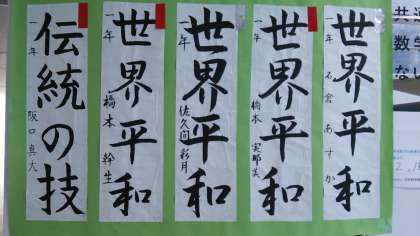 世界平和
一年 石倉あすか
世界平和
一年 橋本実耶美
世界平和
一年 佐久間彩月
世界平和
一年 橋本幹生
伝統の技
一年 阪口真大
数学